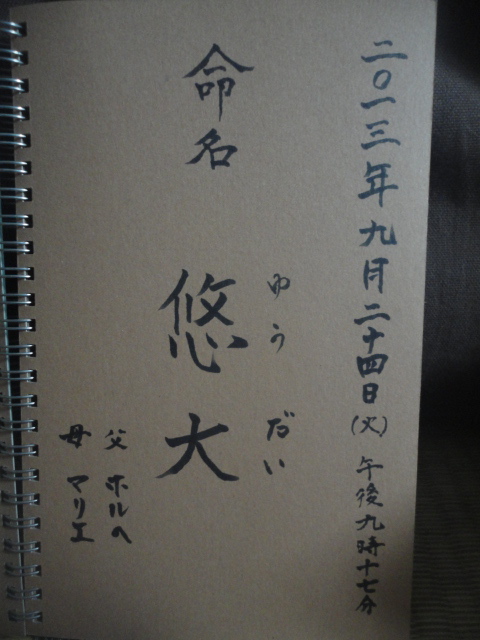 二〇一三年九月二十四日(火)午後九時十七分
命名
悠大
ゆうだい
父 ホルヘ
母 マリエ